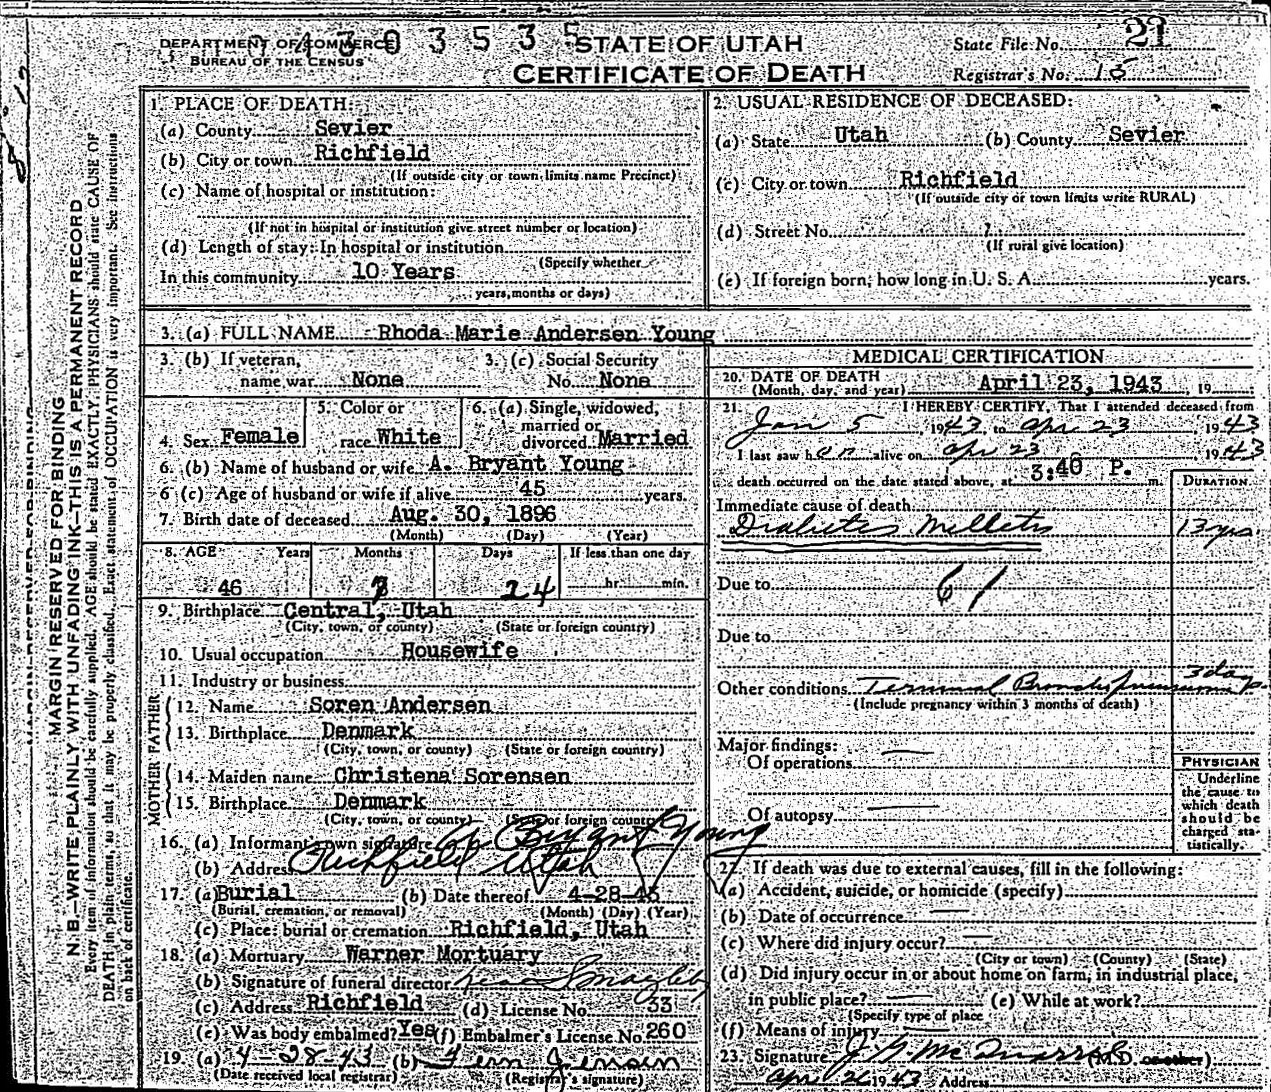 0 4 3 0 3 5 3 5
DEPARTMENT OF COMMERCE
BUREAU OF THE CENSUS
STATE OF UTAH
CERTIFICATE OF DEATH
State File No. 21
Registrar's No. 15
MARGIN RESERVED FOR BINDING
N. B.—WRITE PLAINLY WITH UNFADING INK—THIS IS A PERMANENT RECORD
Every item of information should be carefully supplied. AGE should be stated EXACTLY. PHYSICIANS should state CAUSE OF
DEATH in plain terms, so that it may be properly classified. Exact statement of OCCUPATION is very important. See instructions
on back of certificate.
1. PLACE OF DEATH:
(a) County Sevier
(b) City or town Richfield
(If outside city or town limits name Precinct)
(c) Name of hospital or institution:
(If not in hospital or institution give street number or location)
(d) Length of stay: In hospital or institution
(Specify whether
In this community 10 Years
years, months or days)
2. USUAL RESIDENCE OF DECEASED:
(a) State Utah (b) County Sevier
(c) City or town Richfield
(If outside city or town limits write RURAL)
(d) Street No. ?
(If rural give location)
(e) If foreign born, how long in U. S. A. years.
3. (a) FULL NAME Rhoda Marie Andersen Young
3. (b) If veteran,
name war None
3. (c) Social Security
No. None
4. Sex Female
5. Color or
race White
6. (a) Single, widowed,
married or
divorced Married
6. (b) Name of husband or wife A. Bryant Young
6 (c) Age of husband or wife if alive 45 years.
7. Birth date of deceased Aug. 30, 1896
(Month) (Day) (Year)
8. AGE Years Months Days If less than one day
46 7 24 hr. min.
9. Birthplace Central, Utah
(City, town, or county) (State or foreign country)
10. Usual occupation Housewife
11. Industry or business
FATHER
12. Name Soren Andersen
13. Birthplace Denmark
(City, town, or county) (State or foreign country)
MOTHER
14. Maiden name Christena Sorensen
15. Birthplace Denmark
(City, town, or county) (State or foreign country)
16. (a) Informant's own signature A. Bryant Young
(b) Address Richfield Utah
17. (a) Burial (b) Date thereof 4-28-43
(Burial, cremation, or removal) (Month) (Day) (Year)
(c) Place: burial or cremation Richfield, Utah
18. (a) Mortuary Warner Mortuary
(b) Signature of funeral director
(c) Address Richfield (d) License No. 33
(e) Was body embalmed? Yes (f) Embalmer's License No. 260
19. (a) 4-28-43 (b) Fern Jensen
(Date received local registrar) (Registrar's signature)
MEDICAL CERTIFICATION
20. DATE OF DEATH
(Month, day, and year) April 23, 1943, 19
21. I HEREBY CERTIFY, That I attended deceased from
Jan 5, 1943, to Apr 23 1943
I last saw her alive on Apr 23 1943
death occurred on the date stated above, at 3:40 P. m.
DURATION
Immediate cause of death
Diabetes Mellitis 13 yrs.
Due to 61
Due to
Other conditions Terminal Bronchopneumonia 3 days
(Include pregnancy within 3 months of death)
Major findings:
Of operations
Of autopsy
PHYSICIAN
Underline
the cause to
which death
should be
charged sta-
tistically.
22. If death was due to external causes, fill in the following:
(a) Accident, suicide, or homicide (specify)
(b) Date of occurrence
(c) Where did injury occur?
(City or town) (County) (State)
(d) Did injury occur in or about home on farm, in industrial place,
in public place? (e) While at work?
(Specify type of place
(f) Means of injury
23. Signature J. G. McQuarrie (M.D. or other)
Apr 26 1943 Address